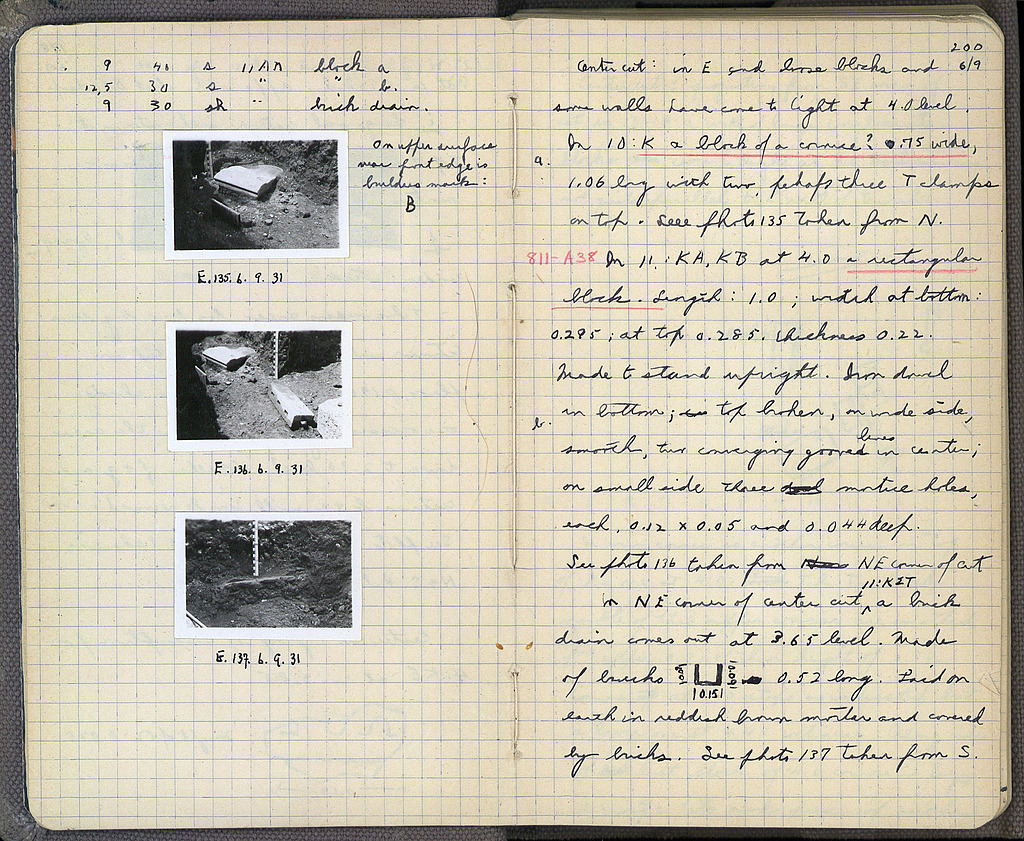 9 40 s 11 AM block a
12,5 30 s " " b.
9 30 sh " brick drain.
On upper surface
near front edge is
builders mark:
B
E. 135. 6. 9. 31
E. 136. 6. 9. 31
E. 137. 6. 9. 31
200
Center cut: in E end loose blocks and 6/9
some walls have come to light at 4.0 level.
a. In 10:K a block of a cornice? 0.75 wide,
1.06 long with two, perhaps three T clamps
on top. See photo 135 taken from N.
811-A38 In 11:KA, KB at 4.0 a rectangular
block. Length: 1.0; width at bottom:
0.295; at top 0.285. thickness 0.22.
Made to stand upright. Iron dowel
b. in bottom; top broken, on wide side,
smooth, two converging grooved lines in center;
on small side three mortice holes,
each 0.12 x 0.05 and 0.044 deep.
See photo 136 taken from NE corner of cut
In NE corner of center cut, 11:KΣΤ a brick
drain comes out at 3.65 level. Made
of bricks 0.09 0.15 0.091 0.52 long. Laid on
earth in reddish brown mortar and covered
by bricks. See photo 137 taken from S.